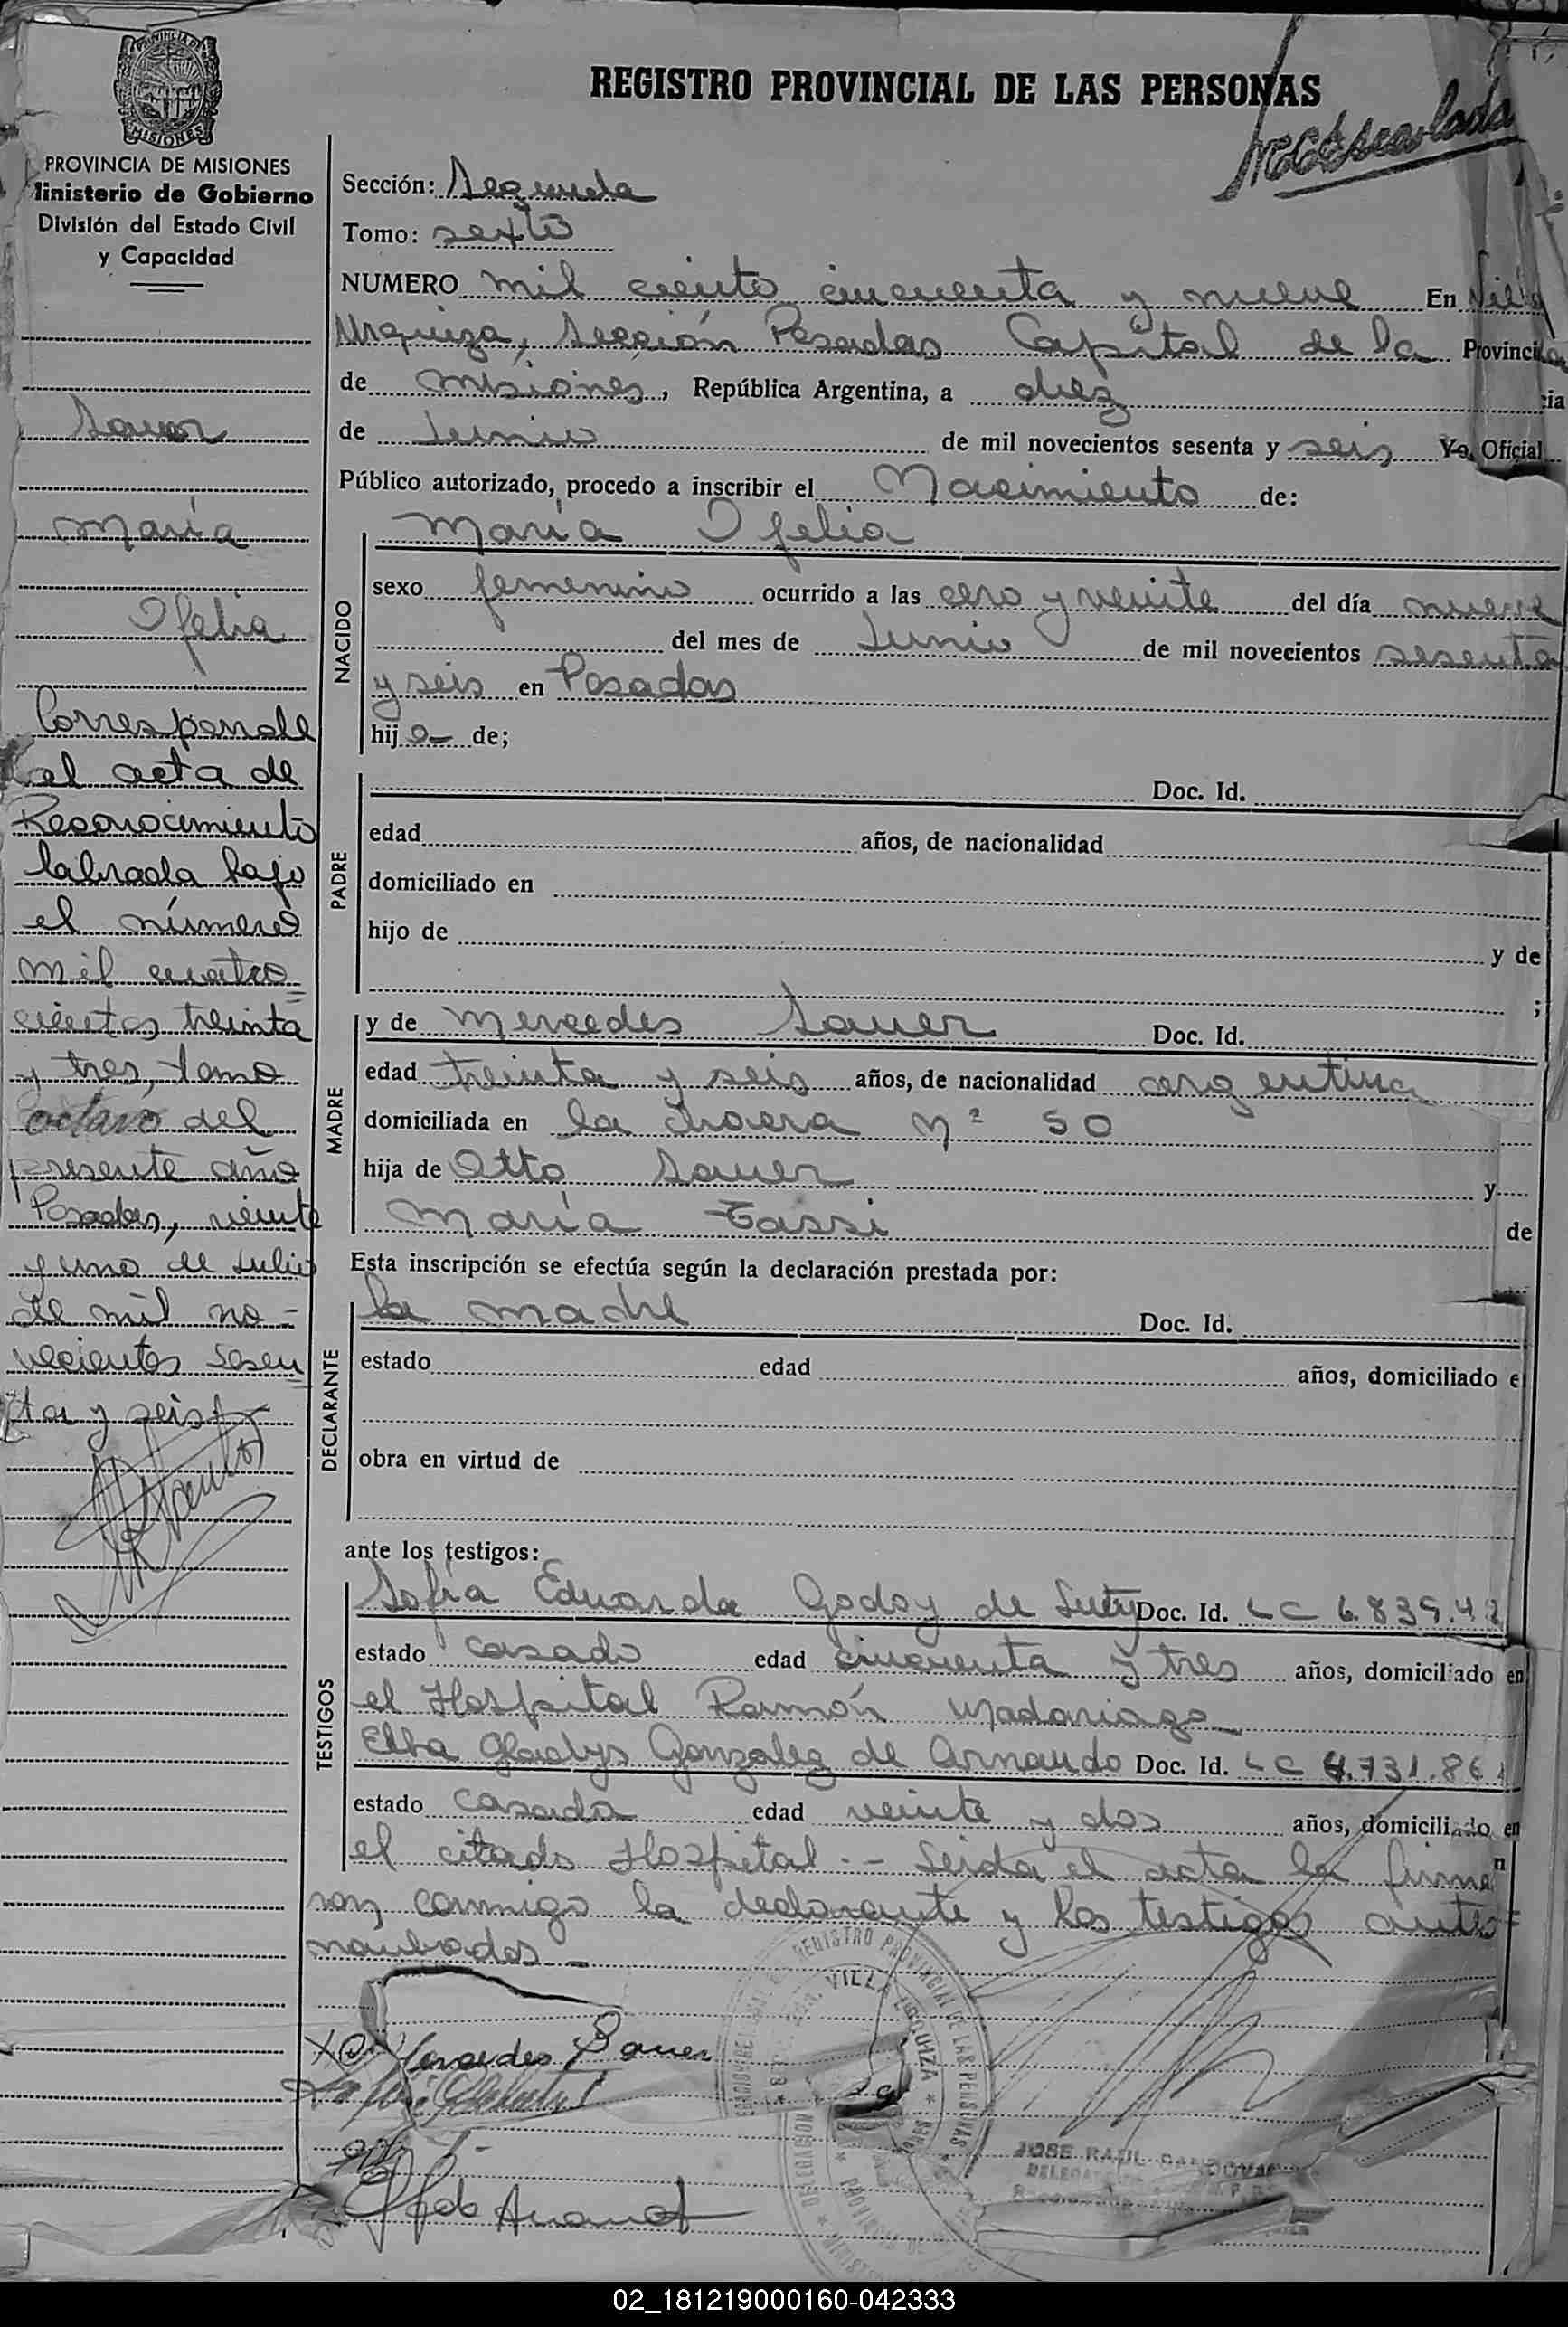 PROVINCIA DE MISIONES
Ministerio de Gobierno
División del Estado Civil
y Capacidad
REGISTRO PROVINCIAL DE LAS PERSONAS
Sección: Segunda
Tomo: sexto
NUMERO mil ciento cincuenta y nueve En Villa
Urquiza, Sección Posadas Capital de la Provincia
de Misiones, República Argentina, a diez
de Junio de mil novecientos sesenta y seis Yo, Oficial
Público autorizado, procedo a inscribir el Nacimiento de:
NACIDO
María Ofelia
sexo femenino ocurrido a las cero y veinte del día nueve
del mes de Junio de mil novecientos sesenta
y seis en Posadas
hija de;
PADRE
Doc. Id.
edad años, de nacionalidad
domiciliado en
hijo de y de
;
MADRE
y de Mercedes Sauer Doc. Id.
edad treinta y seis años, de nacionalidad argentina
domiciliada en la Chacra Nº 50
hija de Otto Sauer y
María Tassi de
Esta inscripción se efectúa según la declaración prestada por:
DECLARANTE
la madre Doc. Id.
estado edad años, domiciliado e
obra en virtud de
ante los testigos:
TESTIGOS
Sofía Eduarda Godoy de Doc. Id. LC 6.839.42
estado casado edad cincuenta y tres años, domiciliado en
el Hospital Ramón Madariaga
Elba Gladys Gonzalez de Arnaudo Doc. Id. LC 4.731.861
estado casada edad veinte y dos años, domiciliado en
el citado Hospital.- Leida el acta la firma
ron conmigo la declarante y los testigos antes
nombrados.-
Mercedes Sauer
REGISTRO PROVINCIAL DE LAS PERSONAS
VILLA URQUIZA
JOSE RAUL SANDOVAL
Sauer
María
Ofelia
Corresponde
al acta de
Reconocimiento
labrada bajo
el número
mil cuatro
cientos treinta
y tres, tomo
octavo del
presente año
Posadas, veinte
y uno de Julio
de mil no-
vecientos sesen
ta y seis
02_181219000160-042333